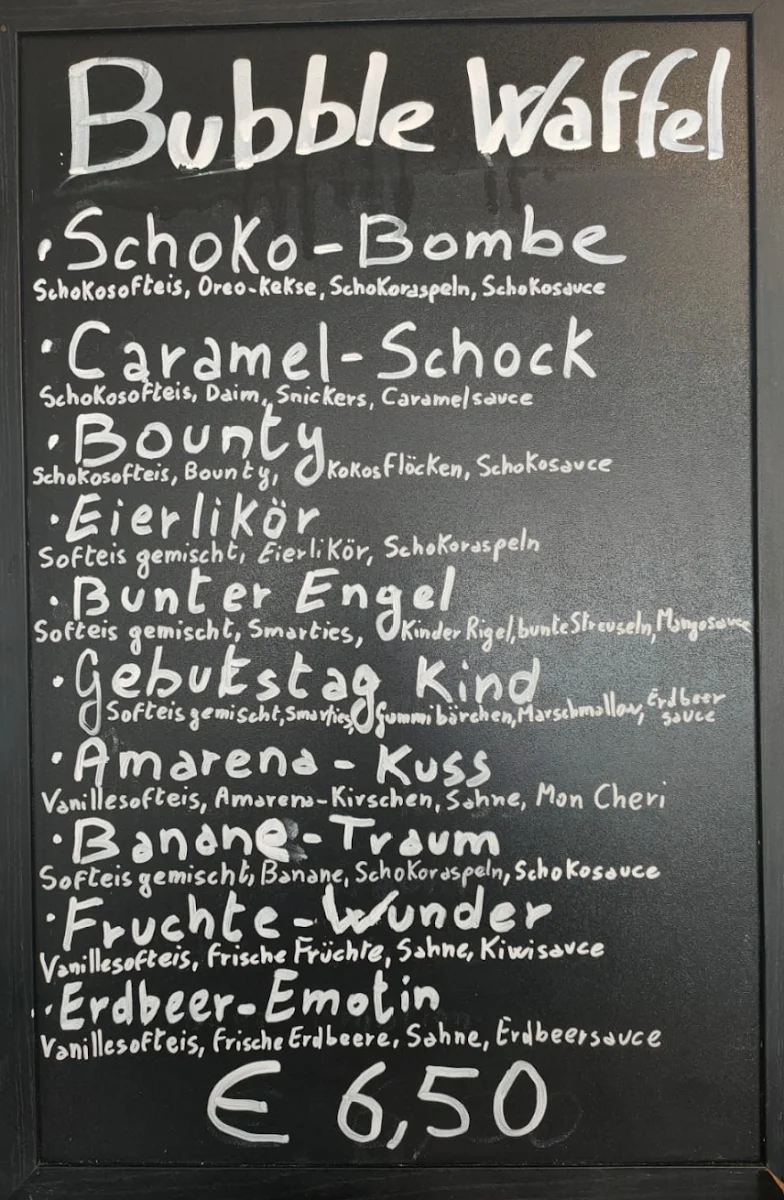 Bubble Waffel
• Schoko-Bombe
Schokosofteis, Oreo-Kekse, Schokoraspeln, Schokosauce
• Caramel-Schock
Schokosofteis, Daim, Snickers, Caramelsauce
• Bounty
Schokosofteis, Bounty, Kokosflöcken, Schokosauce
• Eierlikör
Softeis gemischt, Eierlikör, Schokoraspeln
• Bunter Engel
Softeis gemischt, Smarties, Kinder Rigel, bunte Streuseln, Mangosauce
• Gebutstag Kind
Softeis gemischt, Smarties, Gummibärchen, Marschmallow, Erdbeer sauce
• Amarena-Kuss
Vanillesofteis, Amarena-Kirschen, Sahne, Mon Cheri
• Banane-Traum
Softeis gemischt, Banane, Schokoraspeln, Schokosauce
• Fruchte-Wunder
Vanillesofteis, Frische Früchte, Sahne, Kiwisauce
• Erdbeer-Emotin
Vanillesofteis, Frische Erdbeere, Sahne, Erdbeersauce
€ 6,50